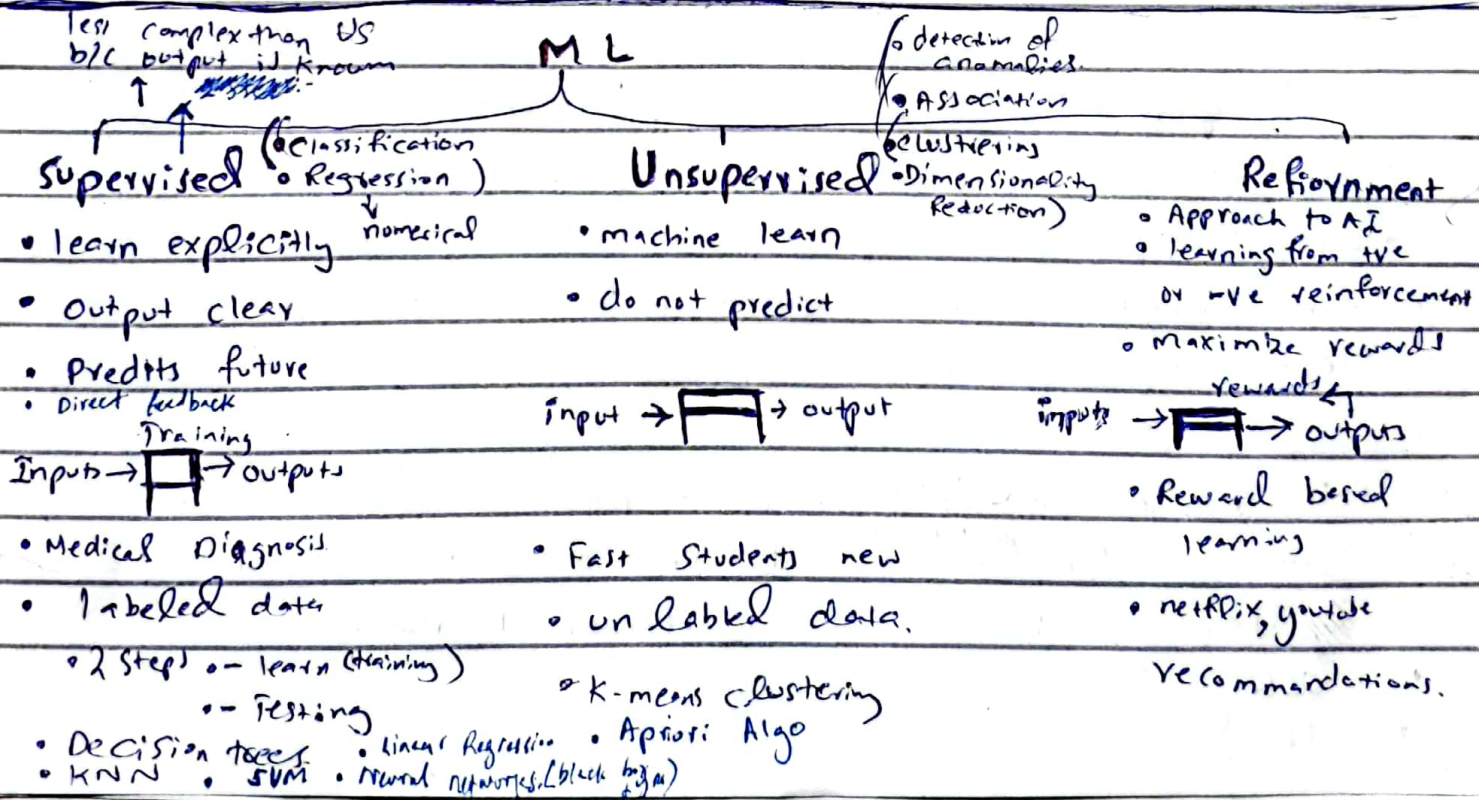 Less complex than US
b/c output is known
ML
• detection of
anomalies.
• Association
Supervised
(• Classification
• Regression)
nomerical
• learn explicitly
• Output clear
• Predits future
• Direct feedback
Training
Inputs → → outputs
• Medical Diagnosis
• labeled data
• 2 Steps •- learn (training)
•- Testing
• Decision trees • Linear Regression
• KNN • SVM • Neural networks (black
Unsupervised
(• Clustriering
• Dimensionality
Reduction)
• machine learn
• do not predict
input → → output
• Fast Students new
• un labled data.
• K-means clustering
• Apriori Algo
Refiornment
• Approach to AI
• learning from +ve
or -ve reinforcement
• maximize rewards
rewards
inputs → → outputs
• Reward based
learning
• netflix, youtube
recommandations.